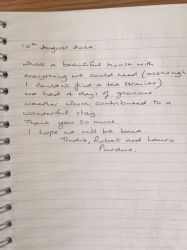 10th August 2020.
What a beautiful house with
everything we could need (although
I couldn't find a tea strainer)
We had 4 days of glorious
weather which contributed to a
wonderful stay.
Thank you so much.
I hope we will be back.
Trudie, Robert and Laura
Purdue.